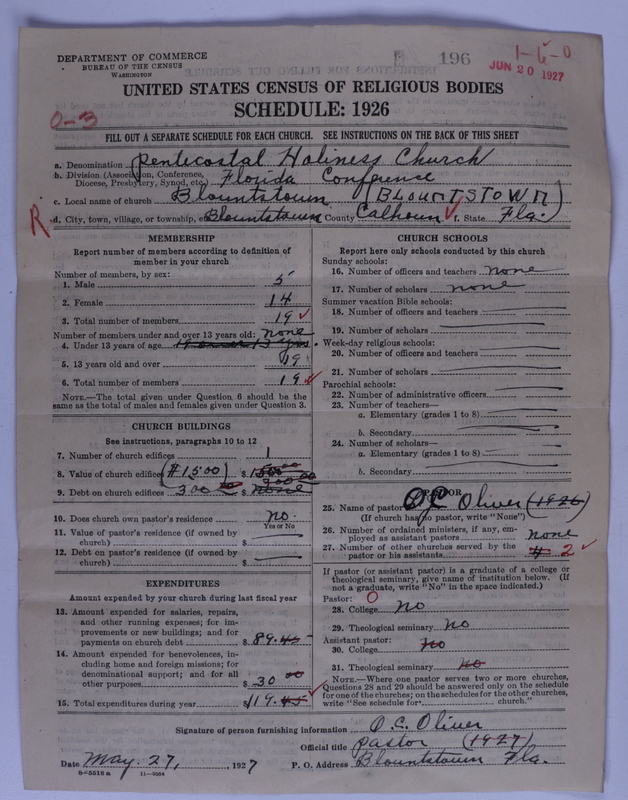 DEPARTMENT OF COMMERCE
BUREAU OF THE CENSUS
WASHINGTON
196
1-6-0
JUN 20 1927
UNITED STATES CENSUS OF RELIGIOUS BODIES
SCHEDULE: 1926
0-3
FILL OUT A SEPARATE SCHEDULE FOR EACH CHURCH. SEE INSTRUCTIONS ON THE BACK OF THIS SHEET
a. Denomination Pentecostal Holiness Church
b. Division (Association, Conference, Diocese, Presbytery, Synod, etc.) Florida Conference
c. Local name of church Blountstown (BLOUNTSTOWN)
R
d. City, town, village, or township, Blountstown County Calhoun State Fla.
MEMBERSHIP
Report number of members according to definition of
member in your church
Number of members, by sex:
1. Male 5
2. Female 14
3. Total number of members 19
Number of members under and over 13 years old:
4. Under 13 years of age none
5. 13 years old and over 19
6. Total number of members 19
NOTE.—The total given under Question 6 should be the
same as the total of males and females given under Question 3.
CHURCH BUILDINGS
See instructions, paragraphs 10 to 12
7. Number of church edifices 1
8. Value of church edifices (#1500) $ 1500 00
9. Debt on church edifices 300 $ none 300 00
10. Does church own pastor's residence no.
Yes or No
11. Value of pastor's residence (if owned by
church) $
12. Debt on pastor's residence (if owned by
church) $
EXPENDITURES
Amount expended by your church during last fiscal year
13. Amount expended for salaries, repairs,
and other running expenses; for im-
provements or new buildings; and for
payments on church debt $ 89.45
14. Amount expended for benevolences, in-
cluding home and foreign missions; for
denominational support; and for all
other purposes $ 30 00
15. Total expenditures during year $ 119.45
CHURCH SCHOOLS
Report here only schools conducted by this church
Sunday schools:
16. Number of officers and teachers none
17. Number of scholars none
Summer vacation Bible schools:
18. Number of officers and teachers
19. Number of scholars
Week-day religious schools:
20. Number of officers and teachers
21. Number of scholars
Parochial schools:
22. Number of administrative officers
23. Number of teachers—
a. Elementary (grades 1 to 8)
b. Secondary
24. Number of scholars—
a. Elementary (grades 1 to 8)
b. Secondary
PASTOR
25. Name of pastor O.C. Oliver (1926)
(If church has no pastor, write "None")
26. Number of ordained ministers, if any, em-
ployed as assistant pastors none
27. Number of other churches served by the
pastor or his assistants 2
If pastor (or assistant pastor) is a graduate of a college or
theological seminary, give name of institution below. (If
not a graduate, write "No" in the space indicated.)
Pastor: 0
28. College No
29. Theological seminary No
Assistant pastor:
30. College No
31. Theological seminary No
NOTE.—Where one pastor serves two or more churches,
Questions 28 and 29 should be answered only on the schedule
for one of the churches; on the schedules for the other churches,
write "See schedule for church."
Signature of person furnishing information O.C. Oliver
Official title pastor (1927)
Date May 27, 1927 P. O. Address Blountstown Fla.
8-5518 a 11-9064